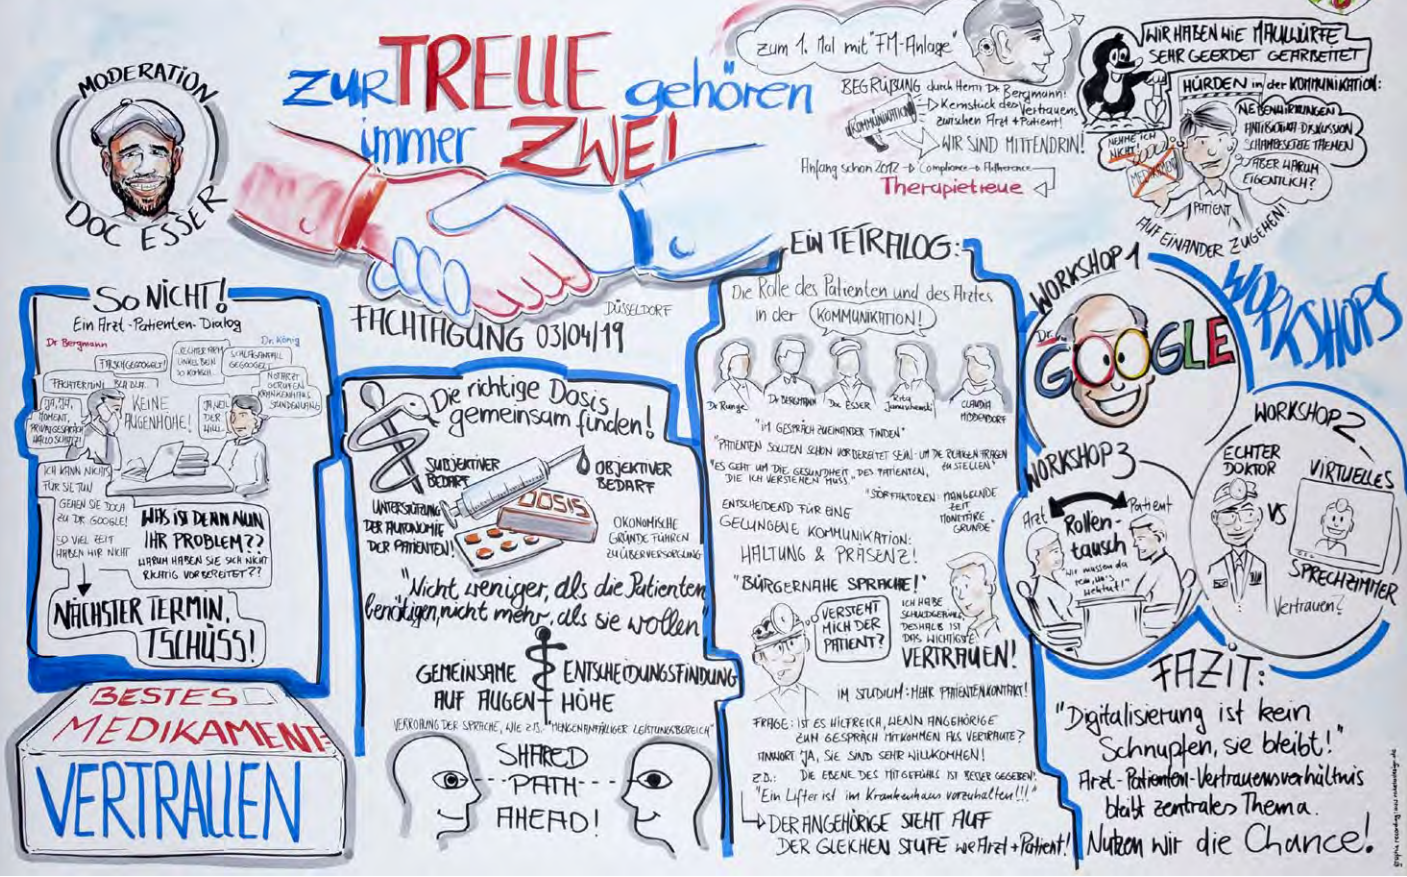 MODERATION
DOC ESSER
zur TREUE gehören
immer ZWEI
FACHTAGUNG 03/04/19
DÜSSELDORF
zum 1. Mal mit "FM-Anlage"
BEGRÜßUNG durch Herrn Dr. Bergmann!
KOMMUNIKATION
Kernstück des Vertrauens
zwischen Arzt + Patient!
WIR SIND MITTENDRIN!
Anfang schon 2012 → Compliance → Adherence
Therapietreue
WIR HABEN WIE MAULWÜRFE
SEHR GEERDET GEARBEITET
HÜRDEN in der KOMMUNIKATION:
NEBENWIRKUNGEN
SCHAMBESETZTE THEMEN
ABER WARUM
EIGENTLICH?
NEHME ICH
NICHT!
PATIENT
AUF EINANDER ZUGEHEN!
SO NICHT!
Ein Arzt-Patienten-Dialog
Dr Bergmann
Dr. König
FALSCH GEGOOGELT
SCHLAGANFALL
GEGOOGELT
NOTARZT
GERUFEN
FACHTERMINI BLA BLA..
KEINE
AUGENHÖHE!
JA, JA,
MOMENT,
PRIVATGESPRÄCH
ICH KANN NICHTS
FÜR SIE TUN!
GEHEN SIE DOCH
ZU DR GOOGLE!
SO VIEL ZEIT
HABEN WIR NICHT
WAS IST DENN NUN
IHR PROBLEM??
WARUM HABEN SIE SICH NICHT
RICHTIG VORBEREITET??
NÄCHSTER TERMIN,
TSCHÜSS!
BESTES
MEDIKAMENT
VERTRAUEN
Die richtige Dosis
gemeinsam finden!
SUBJEKTIVER
BEDARF
OBJEKTIVER
BEDARF
DOSIS
UNTERSTÜTZUNG
DER AUTONOMIE
DER PATIENTEN!
ÖKONOMISCHE
GRÜNDE FÜHREN
ZU ÜBERVERSORGUNG
"Nicht weniger, als die Patienten
benötigen, nicht mehr, als sie wollen"
GEMEINSAME ENTSCHEIDUNGSFINDUNG
AUF AUGENHÖHE
VERROHUNG DER SPRACHE, WIE Z.B. "MENGENANFÄLLIGER LEISTUNGSBEREICH"
SHARED
PATH
AHEAD!
EIN TETRALOG:
Die Rolle des Patienten und des Arztes
in der KOMMUNIKATION!
Dr Runge
Dr BERGMANN
Doc ESSER
CLAUDIA
MIDDENDORF
"IM GESPRÄCH ZUEINANDER FINDEN"
"PATIENTEN SOLLTEN SCHON VORBEREITET SEIN: UM DIE RICHTIGEN FRAGEN
ZU STELLEN"
"ES GEHT UM DIE GESUNDHEIT DES PATIENTEN,
DIE ICH VERSTEHEN MUSS"
"STÖRFAKTOREN: MANGELNDE
ZEIT
MONETÄRE
GRÜNDE"
ENTSCHEIDEND FÜR EINE
GELUNGENE KOMMUNIKATION:
HALTUNG & PRÄSENZ!
"BÜRGERNAHE SPRACHE!"
VERSTEHT
MICH DER
PATIENT?
ICH HABE
DESHALB IST
DAS WICHTIGSTE
VERTRAUEN!
IM STUDIUM: MEHR PATIENTENKONTAKT!
FRAGE: IST ES HILFREICH, WENN ANGEHÖRIGE
ZUM GESPRÄCH MITKOMMEN ALS VERTRAUTE?
ANTWORT "JA, SIE SIND SEHR WILLKOMMEN!
Z.B.: DIE EBENE DES MITGEFÜHLS IST BESSER GEGEBEN".
"Ein Lifter ist im Krankenhaus vorzuhalten!!!"
DER ANGEHÖRIGE STEHT AUF
DER GLEICHEN STUFE wie Arzt + Patient!
WORKSHOPS
WORKSHOP 1
Dr. GOOGLE
WORKSHOP 2
ECHTER
DOKTOR
VS
VIRTUELLES
SPRECHZIMMER
Vertrauen?
WORKSHOP 3
Arzt
Patient
Rollen-
tausch
FAZIT:
"Digitalisierung ist kein
Schnupfen, sie bleibt!"
Arzt-Patienten-Vertrauensverhältnis
bleibt zentrales Thema.
Nutzen wir die Chance!